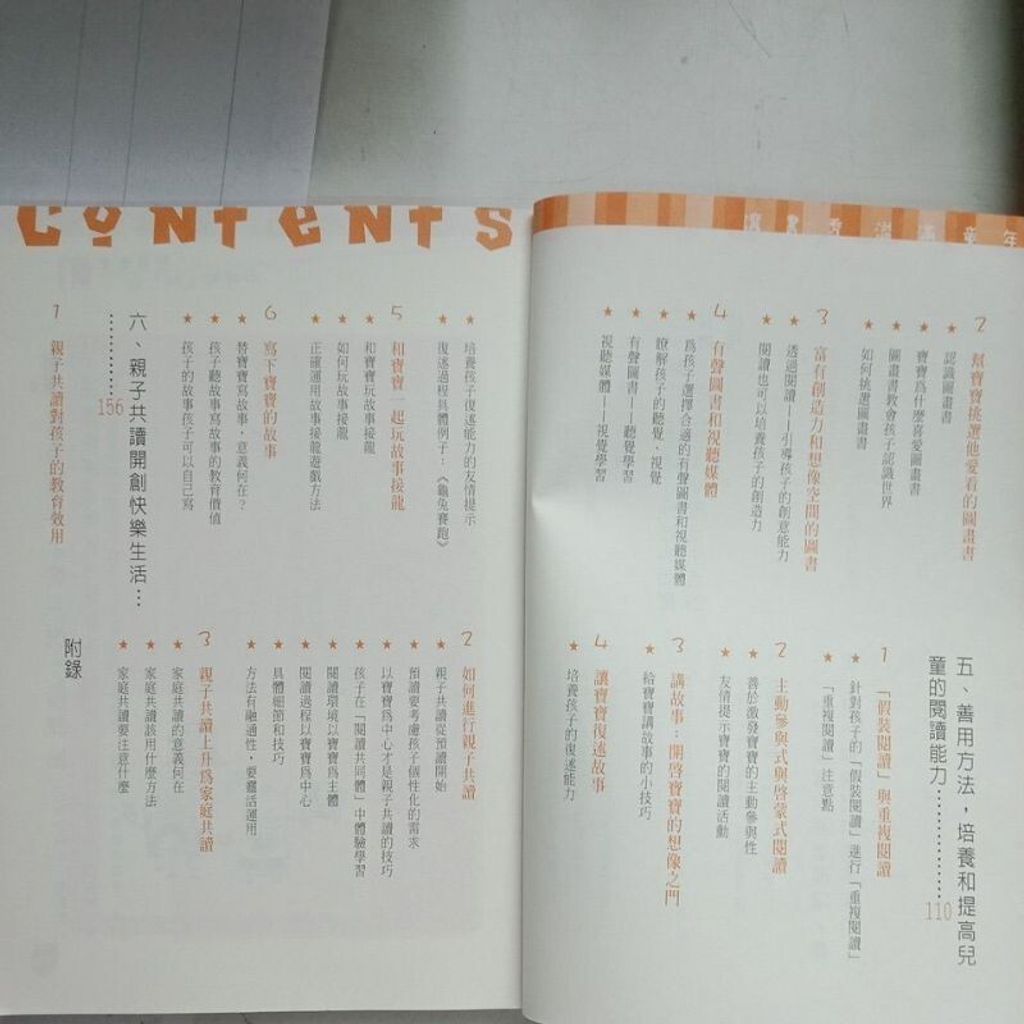 童年
2 幫寶寶挑選他愛看的圖畫書
★ 認識圖畫書
★ 寶寶爲什麼喜愛圖畫書
★ 圖畫書教會孩子認識世界
★ 如何挑選圖畫書
3 富有創造力和想像空間的圖書
★ 透過閱讀——引導孩子的創意能力
★ 閱讀也可以培養孩子的創造力
4 有聲圖書和視聽媒體
★ 爲孩子選擇合適的有聲圖書和視聽媒體
★ 瞭解孩子的聽覺、視覺
★ 有聲圖書——聽覺學習
★ 視聽媒體——視覺學習
五、善用方法，培養和提高兒
童的閱讀能力…………110
1 「假裝閱讀」與重複閱讀
★ 針對孩子的「假裝閱讀」進行「重複閱讀」
★ 「重複閱讀」注意點
2 主動參與式與啓蒙式閱讀
★ 善於激發寶寶的主動參與性
★ 友情提示寶寶的閱讀活動
3 講故事：開啓寶寶的想像之門
★ 給寶寶講故事的小技巧
4 讓寶寶復述故事
★ 培養孩子的復述能力
Contents
★ 培養孩子復述能力的友情提示
★ 復述過程具體例子：《龜兔賽跑》
5 和寶寶一起玩故事接龍
★ 和寶寶玩故事接龍
★ 如何玩故事接龍
★ 正確運用故事接龍遊戲方法
6 寫下寶寶的故事
★ 替寶寶寫故事，意義何在？
★ 孩子聽故事寫故事的教育價值
★ 孩子的故事孩子可以自己寫
六、親子共讀開創快樂生活…
…………156
1 親子共讀對孩子的教育效用
2 如何進行親子共讀
★ 親子共讀從預讀開始
★ 預讀要考慮孩子個性化的需求
★ 以寶寶爲中心才是親子共讀的技巧
★ 孩子在「閱讀共同體」中體驗學習
★ 閱讀環境以寶寶爲主體
★ 閱讀過程以寶寶爲中心
★ 具體細節和技巧
★ 方法有融通性，要靈活運用
3 親子共讀上升爲家庭共讀
★ 家庭共讀的意義何在
★ 家庭共讀該用什麼方法
★ 家庭共讀要注意什麼
附錄